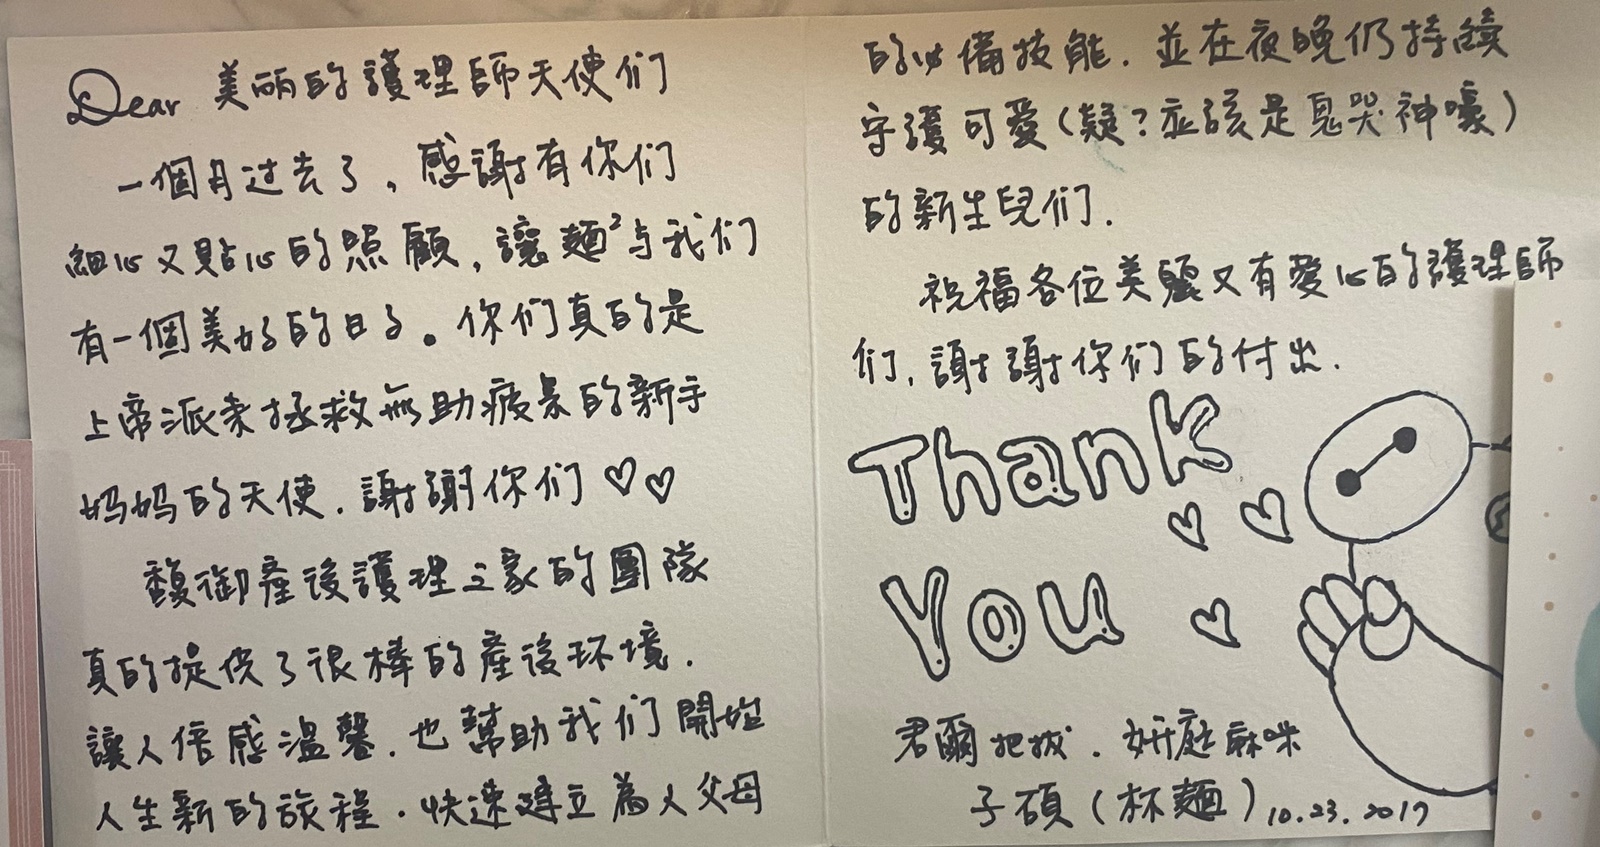 Dear 美丽的護理師天使们
一個月过去了,感謝有你们
細心又貼心的照顧,讓麵²与我们
有一個美好的日子。你们真的是
上帝派来拯救無助疲累的新手
妈妈的天使.謝謝你们♡♡
馥御產後護理之家的團隊
真的提供了很棒的產後环境.
讓人倍感溫馨.也幫助我们開始
人生新的旅程.快速建立為人父母
的必備技能.並在夜晚仍持續
守護可愛(疑?应該是鬼哭神嚎)
的新生兒们.
祝福各位美麗又有愛心的護理師
们,謝謝你们的付出.
Thank
You
君爾把拔.妍庭麻咪
子碩(杯麵)10.23.2017